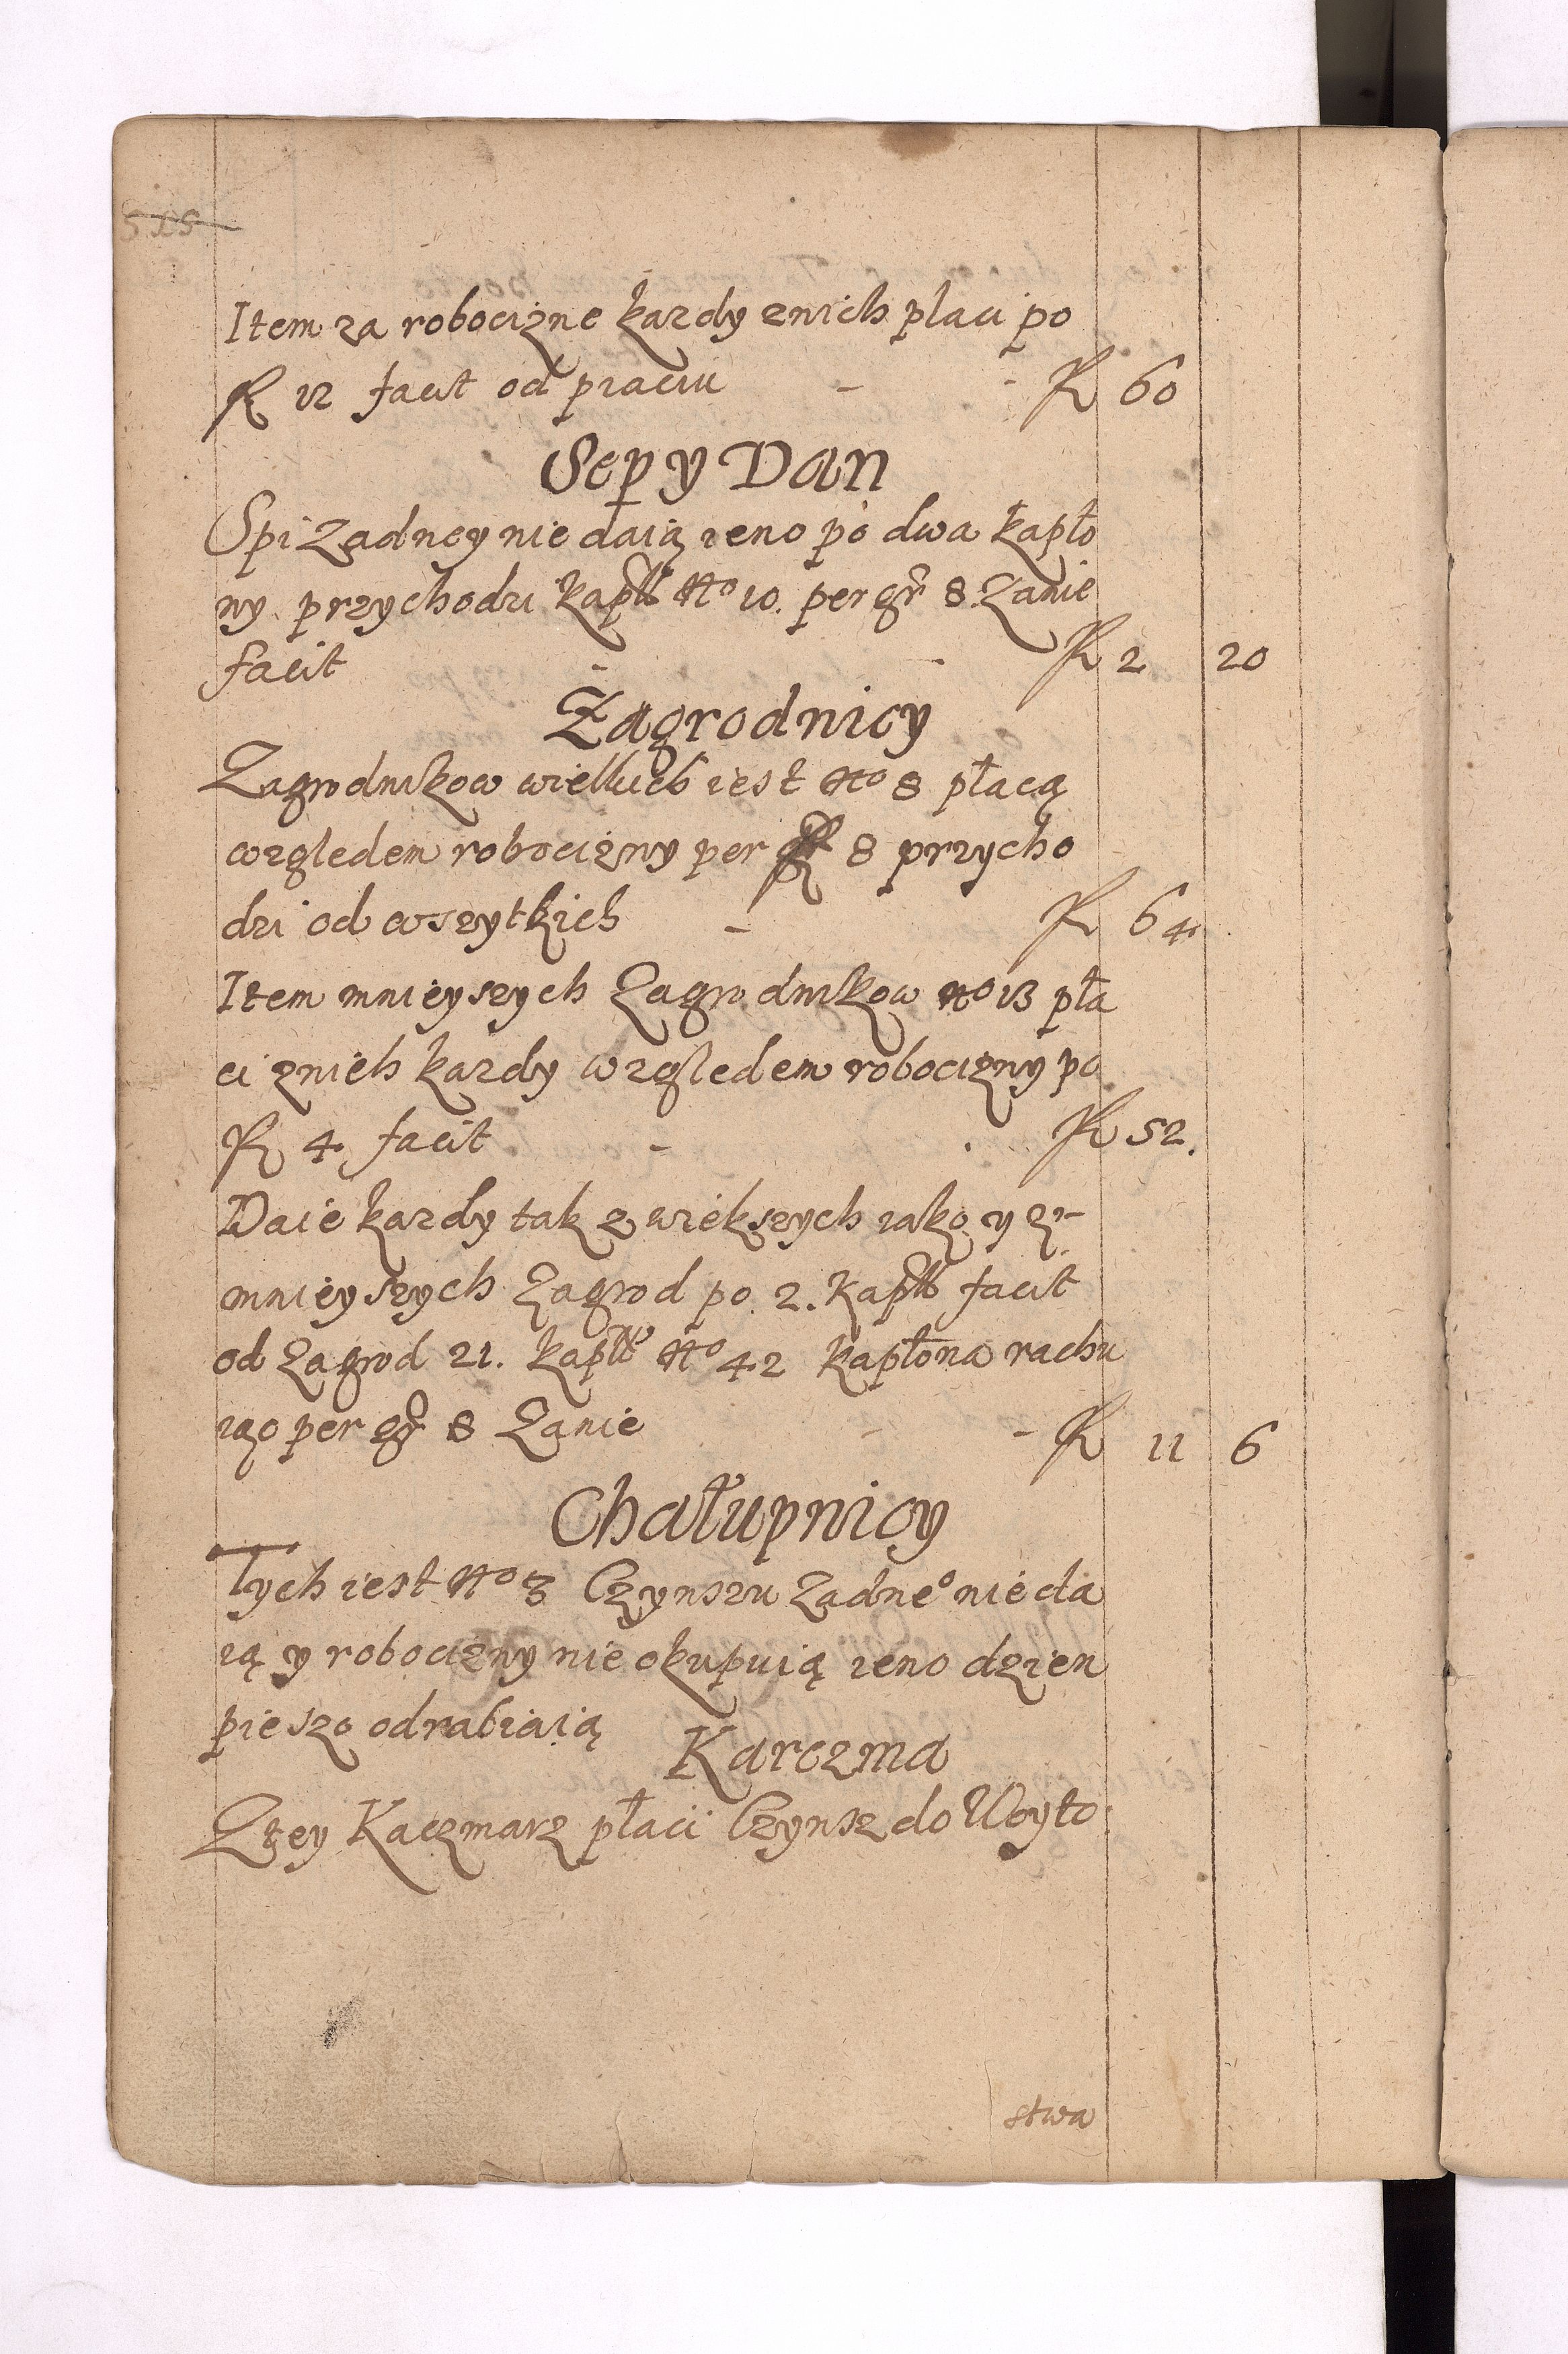 Item za robociznę kazdy znich placi po
fl 12 facit od piaciu - - fl 60
Sepy Dan
Spi Zadney nie daią ieno po dwa kapło
ny przychodzi kapll No 10. per gr 8 Zanie
facit - - fl 2 20
Zagrodnicy
Zagrodnikow wielkich iest No 8 płacą
względem robocizny per fl 8 przycho
dzi od wszytkich - fl 64
Item mnieyszych Zagrodnikow No 13 pła
ci znich kazdy względem robocizny po
fl 4 facit - fl 52.
Daie kazdy tak z wiekszych iako y z-
mnieyszych Zagrod po 2. kapll facit
od Zagrod 21. kapll No 42 kapłona rachu
iąo per gr 8 Zanie - - fl 11 6
Chałupnicy
Tych iest No 3 Czynszu Zadneo nie da
ią y robocizny nie okupuią ieno dzien
pieszo odrabiaią
Karczma
Ztey Kaczmarz płaci Czynsz do Woyto
stwa